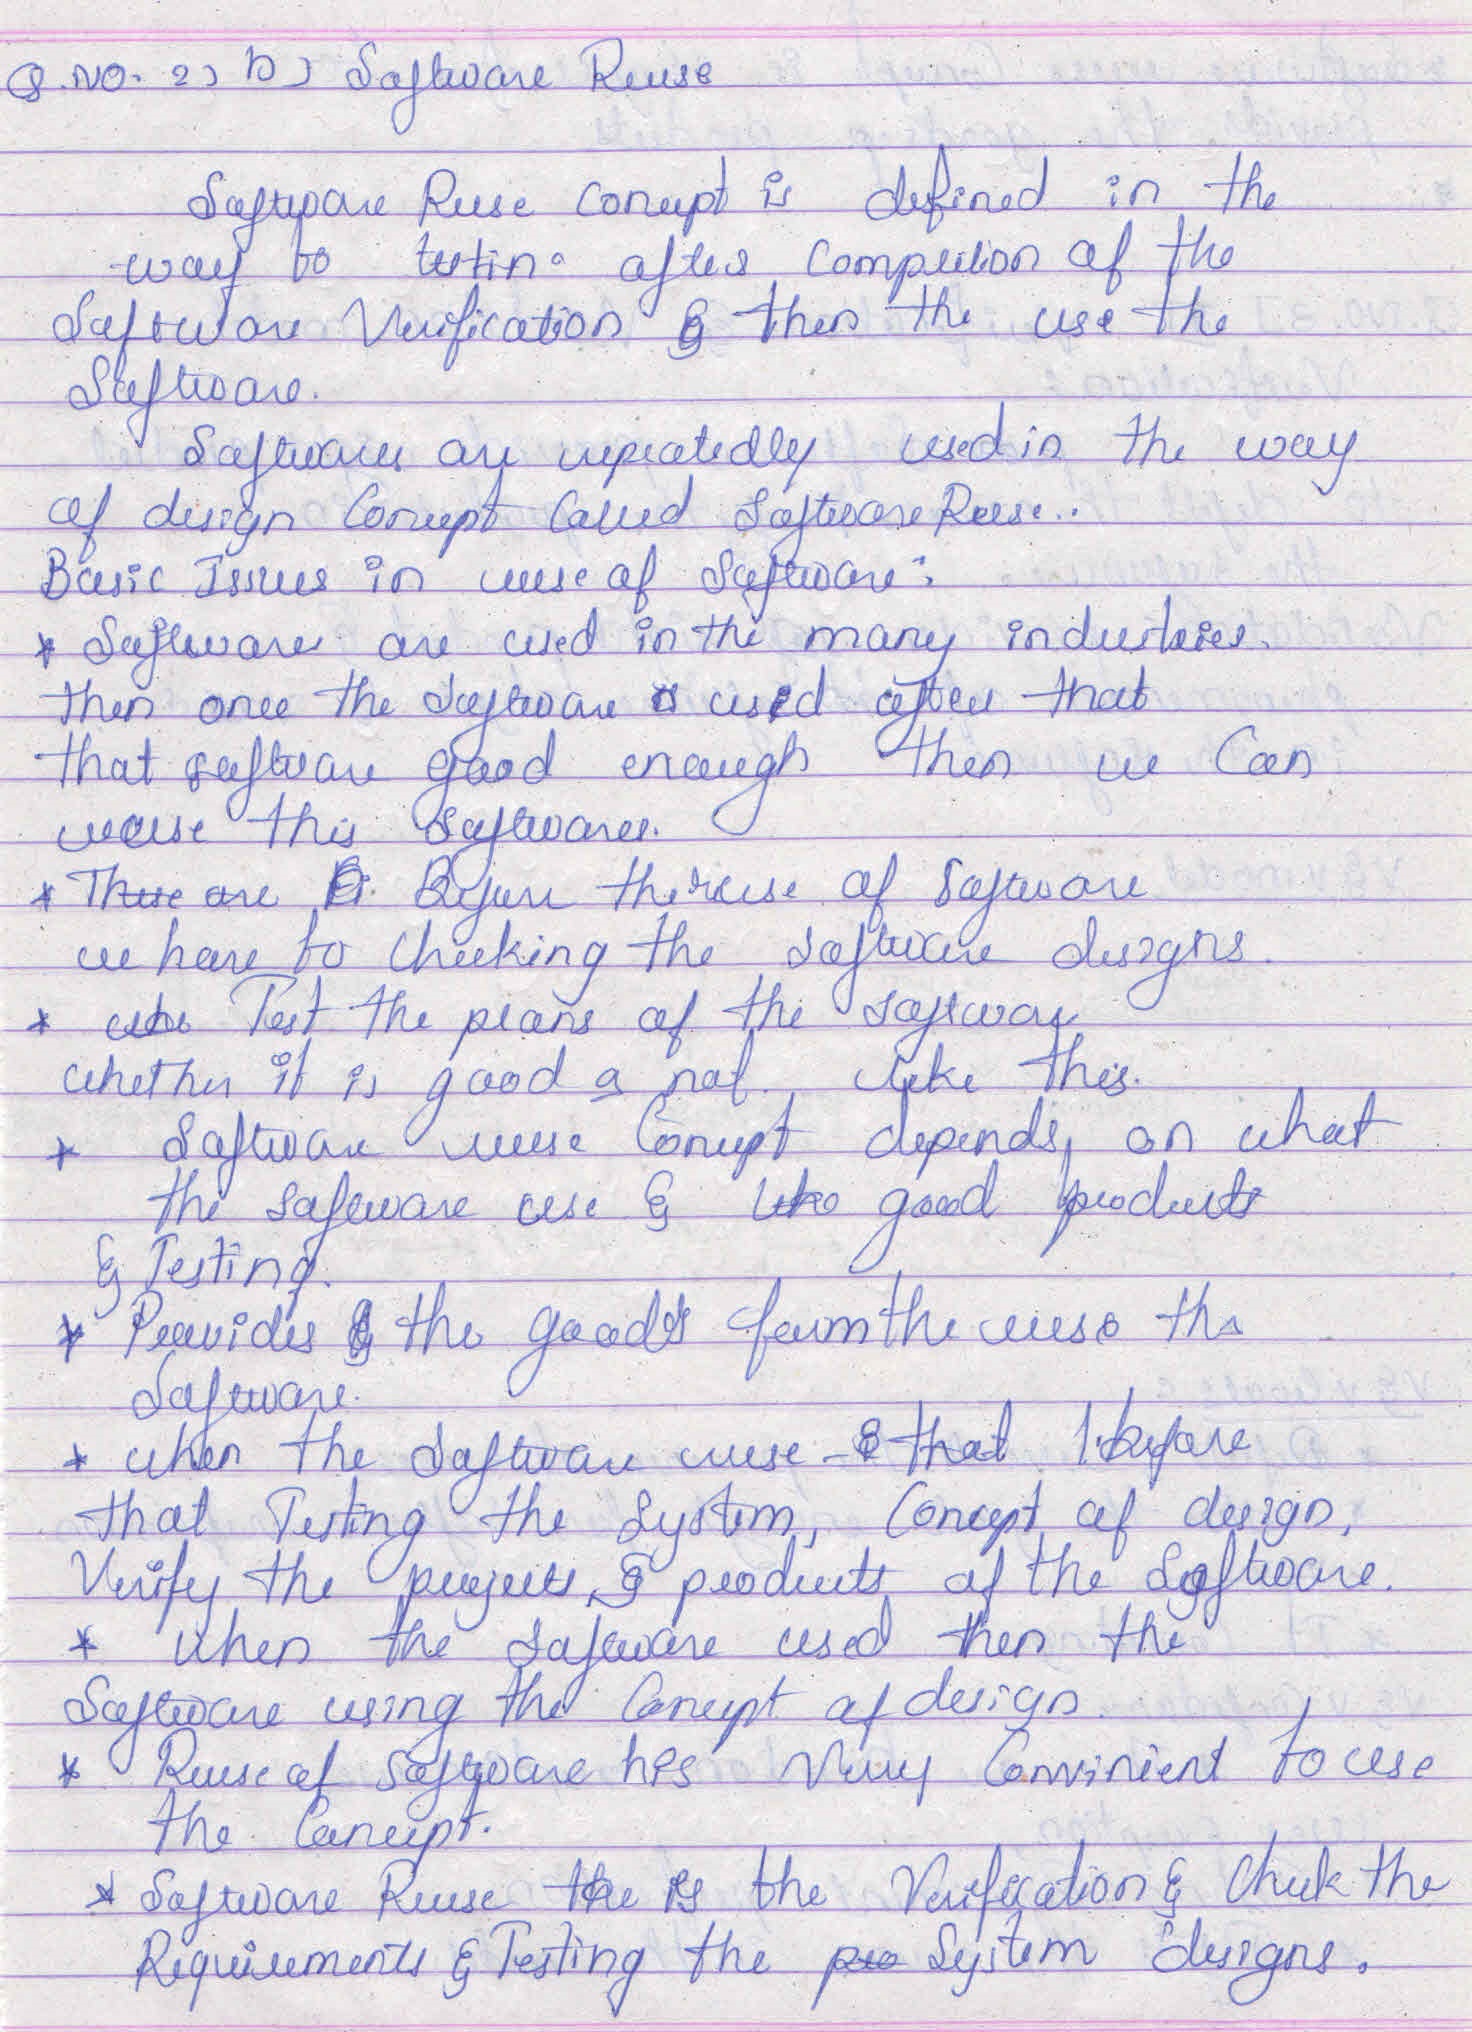 Q.NO. 2) b) Software Reuse
Software Reuse Concept is defined in the
way to testing after Completion of the
Software Verification & then the use the
Software.
Softwares are repeatedly used in the way
of design Concept Called Software Reuse..
Basic Issues in reuse of Software:
* Softwares are used in the many industries.
then once the Software is used after that
that software good enough then we Can
reuse this Softwares.
* There are Before the reuse of Software
we have to Checking the Software designs.
* Test the plans of the Software
whether it is good or not. like this.
* Software reuse Concept depends on what
the Software use & good products
& Testing.
* Provides the goods from the reuse the
Software.
* when the Software reuse that before
that Testing the System, Concept of design,
Verify the projects, & products of the Software.
* When the Software used then the
Software using the Concept of design.
* Reuse of Software has Very Convinient to use
the Concept.
* Software Reuse the is the Verification & Check the
Requirements & Testing the pro System designs.